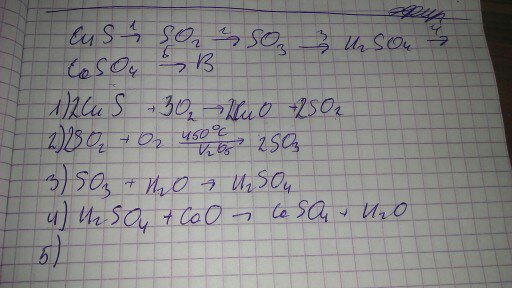 CuS 1→ SO2 2→ SO3 3→ H2SO4 4→
CaSO4 5→ B
1) 2CuS + 3O2 → 2CuO + 2SO2
2) 2SO2 + O2 450°C V2O5 → 2SO3
3) SO3 + H2O → H2SO4
4) H2SO4 + CaO → CaSO4 + H2O
5)